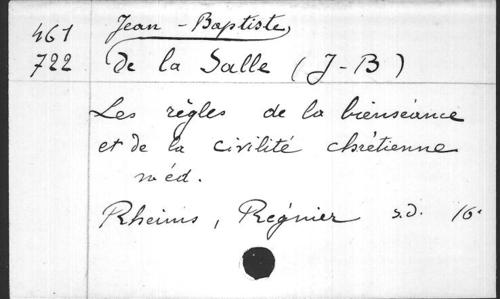 461 Jean-Baptiste,
722 de la Salle (J-B)
Les règles de la bienséance
et de la civilité chrétienne
éd.
Rheims, Regnier s.d. 16°